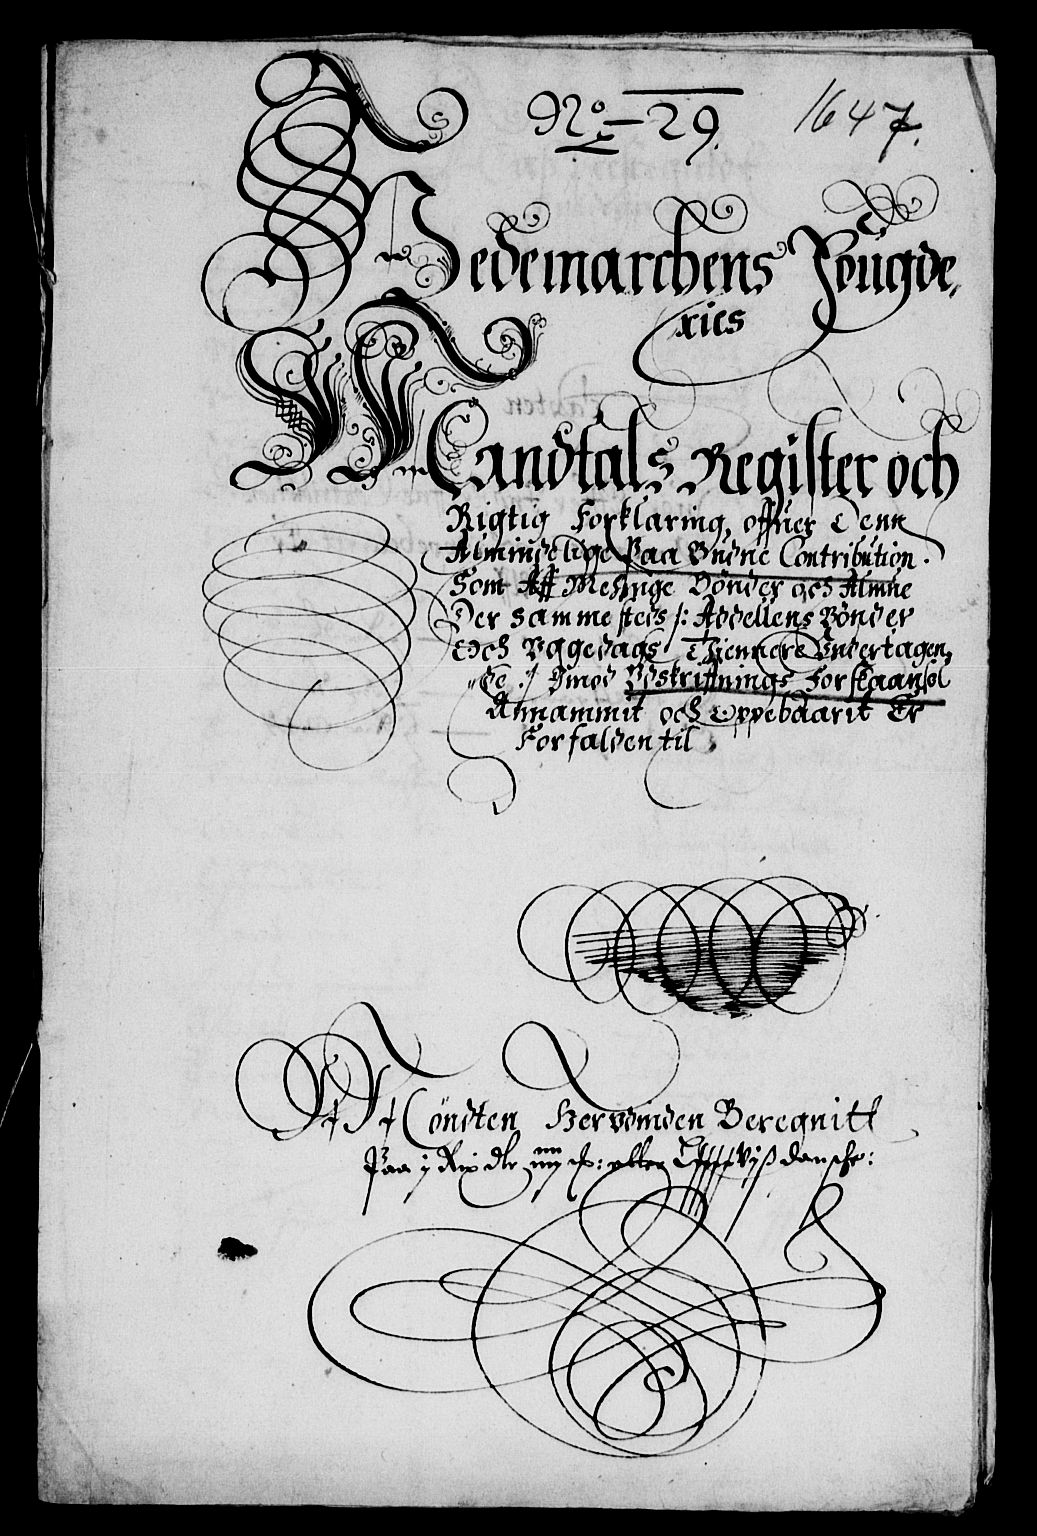 No: 29.
1647.
Hedemarchens Fougde,
ries
Mandtals Register och
Rigtig Forklaring, offuer Denn
Almindelige Paa Budne Contribution.
Som Aff Menige Bønder och Almue
Der sammesteds /: Addellens Bønder
Och Vggedags Thiennere Undertagen,
de :/ Imod Vdskriffnings Forskaansel
Annammit och Oppebaarit Er
Forfalden til
Møndten Herudinden Beregnitt
Paa j Rix dlr